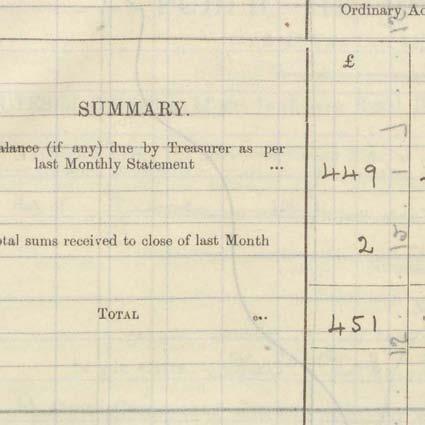 Ordinary Ac
£
SUMMARY.
alance (if any) due by Treasurer as per
last Monthly Statement ... 449
otal sums received to close of last Month 2
TOTAL ... 451